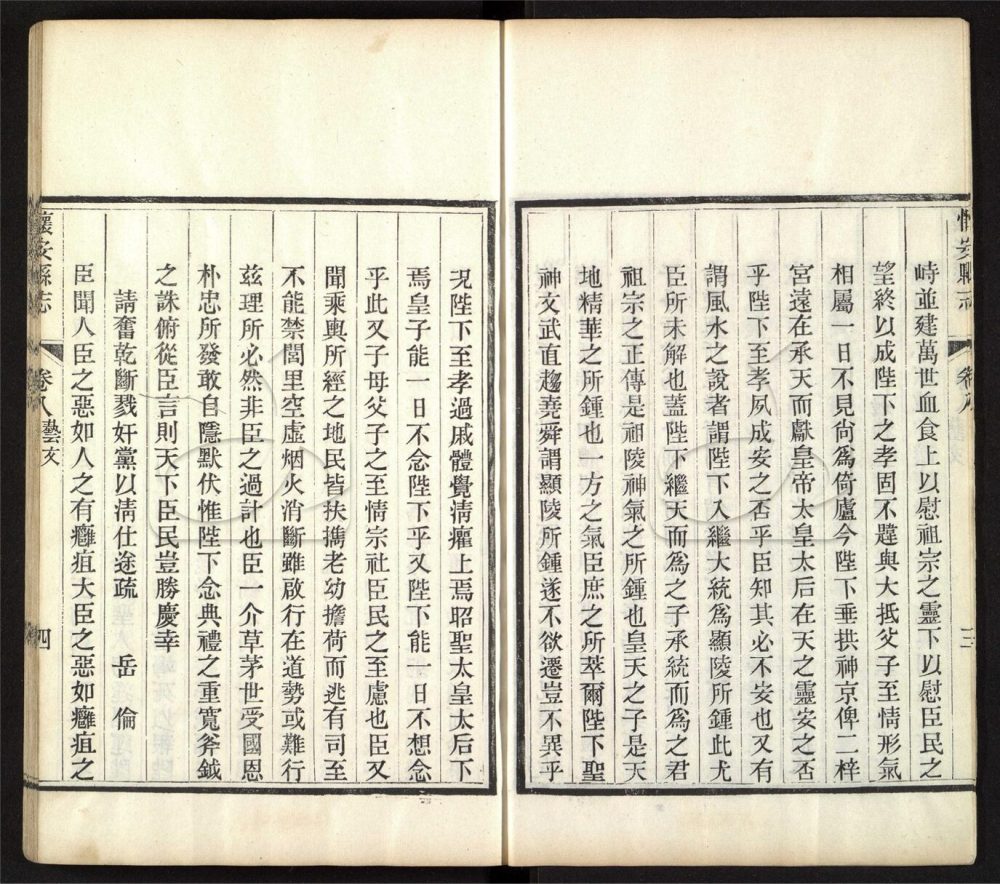 懷安縣志 卷八 三
峙並建萬世血食上以慰祖宗之靈下以慰臣民之
望終以成陛下之孝固不韙與大抵父子至情形氣
相屬一日不見尚爲倚廬今陛下垂拱神京俾二梓
宮遠在承天而獻皇帝太皇太后在天之靈安之否
乎陛下至孝夙成安之否乎臣知其必不安也又有
謂風水之說者謂陛下入繼大統爲顯陵所鍾此尤
臣所未解也蓋陛下繼天而爲之子承統而爲之君
祖宗之正傳是祖陵神氣之所鍾也皇天之子是天
地精華之所鍾也一方之氣臣庶之所萃爾陛下聖
神文武直趨堯舜謂顯陵所鍾遂不欲遷豈不異乎
況陛下至孝過戚體覺清癯上焉昭聖太皇太后下
焉皇子能一日不念陛下乎又陛下能一日不想念
乎此又子母父子之至情宗社臣民之至慮也臣又
聞乘輿所經之地民皆扶攜老幼擔荷而逃有司至
不能禁閭里空虛烟火消斷雖啟行在道勢或難行
茲理所必然非臣之過計也臣一介草茅世受國恩
朴忠所發敢自隱默伏惟陛下念典禮之重寬斧鉞
之誅俯從臣言則天下臣民豈勝慶幸
請奮乾斷戮奸黨以清仕途疏 岳倫
臣聞人臣之惡如人之有癰疽大臣之惡如癰疽之
懷安縣志 卷八藝文 四